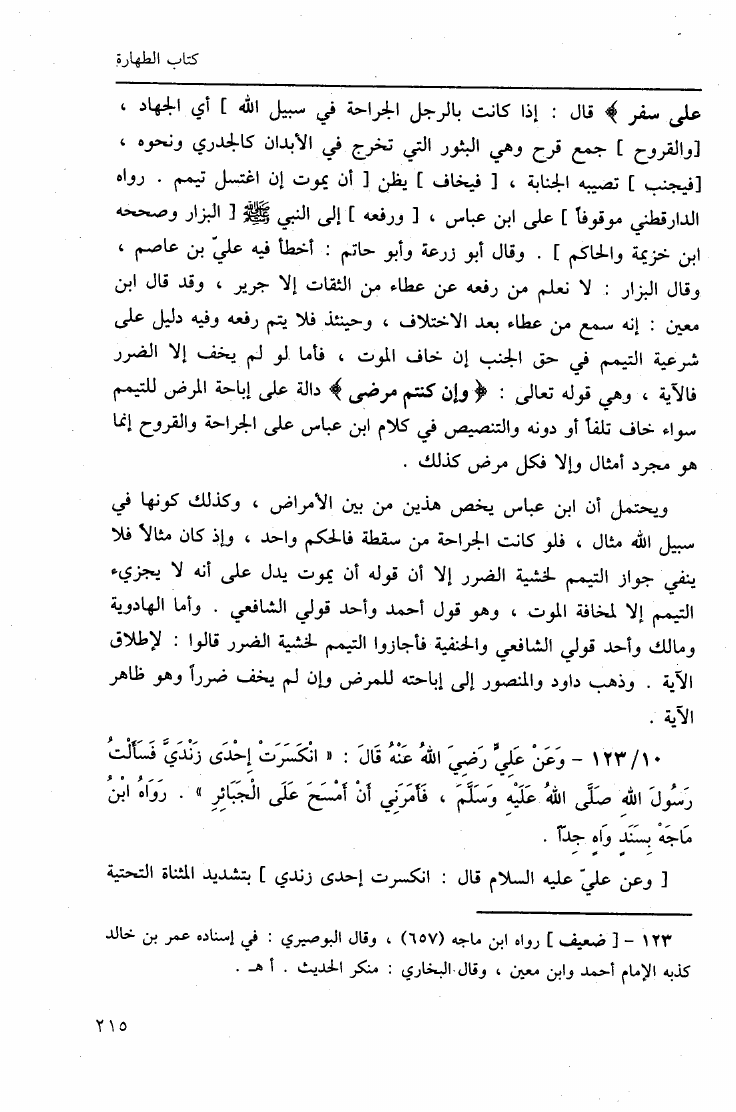 كتاب الطهارة
على سفر ﴾ قال : إذا كانت بالرجل الجراحة في سبيل الله ] أي الجهاد ،
[والقروح ] جمع قرح وهي البثور التي تخرج في الأبدان كالجدري ونحوه ،
[فيجنب ] تصيبه الجنابة ، [ فيخاف ] يظن [ أن يموت إن اغتسل تيمم . رواه
الدارقطني موقوفاً ] على ابن عباس ، [ ورفعه ] إلى النبي ﷺ [ البزار وصححه
ابن خزيمة والحاكم ] . وقال أبو زرعة وأبو حاتم : أخطأ فيه عليّ بن عاصم ،
وقال البزار : لا نعلم من رفعه عن عطاء من الثقات إلا جرير ، وقد قال ابن
معين : إنه سمع من عطاء بعد الاختلاف ، وحينئذ فلا يتم رفعه وفيه دليل على
شرعية التيمم في حق الجنب إن خاف الموت ، فأما لو لم يخف إلا الضرر
فالآية ، وهي قوله تعالى : ﴿ وإن كنتم مرضى ﴾ دالة على إباحة المرض للتيمم
سواء خاف تلفاً أو دونه والتنصيص في كلام ابن عباس على الجراحة والقروح إنما
هو مجرد أمثال وإلا فكل مرض كذلك .
ويحتمل أن ابن عباس يخص هذين من بين الأمراض ، وكذلك كونها في
سبيل الله مثال ، فلو كانت الجراحة من سقطة فالحكم واحد ، وإذ كان مثالاً فلا
ينفي جواز التيمم لخشية الضرر إلا أن قوله أن يموت يدل على أنه لا يجزيء
التيمم إلا لمخافة الموت ، وهو قول أحمد وأحد قولي الشافعي . وأما الهادوية
ومالك وأحد قولي الشافعي والحنفية فأجازوا التيمم لخشية الضرر قالوا : لإطلاق
الآية . وذهب داود والمنصور إلى إباحته للمرض وإن لم يخف ضرراً وهو ظاهر
الآية .
١٢٣/١٠ - وَعَنْ عَلِيٍّ رَضِيَ اللهُ عَنْهُ قَالَ : « انْكَسَرَتْ إِحْدَى زَنْدَيَّ فَسَأَلْتُ
رَسُولَ اللهِ صَلَّى اللهُ عَلَيْهِ وَسَلَّمَ ، فَأَمَرَنِي أَنْ أَمْسَحَ عَلَى الْجَبَائِرِ » . رَوَاهُ ابْنُ
مَاجَهْ بِسَنَدٍ وَاهٍ جِدّاً .
[ وعن عليّ عليه السلام قال : انكسرت إحدى زندي ] بتشديد المثناة التحتية
١٢٣ - [ ضعيف ] رواه ابن ماجه (٦٥٧) ، وقال البوصيري : في إسناده عمر بن خالد
كذبه الإمام أحمد وابن معين ، وقال البخاري : منكر الحديث . أ هـ .
٢١٥